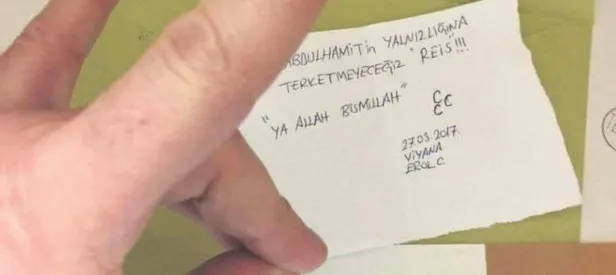 ABDULHAMİTİN YALNIZLIĞINA
TERKETMEYECEĞİZ "REİS"!!!
"YA ALLAH BİSMİLLAH"
C
C C
C
27.03.2017.
VİYANA
EROL C